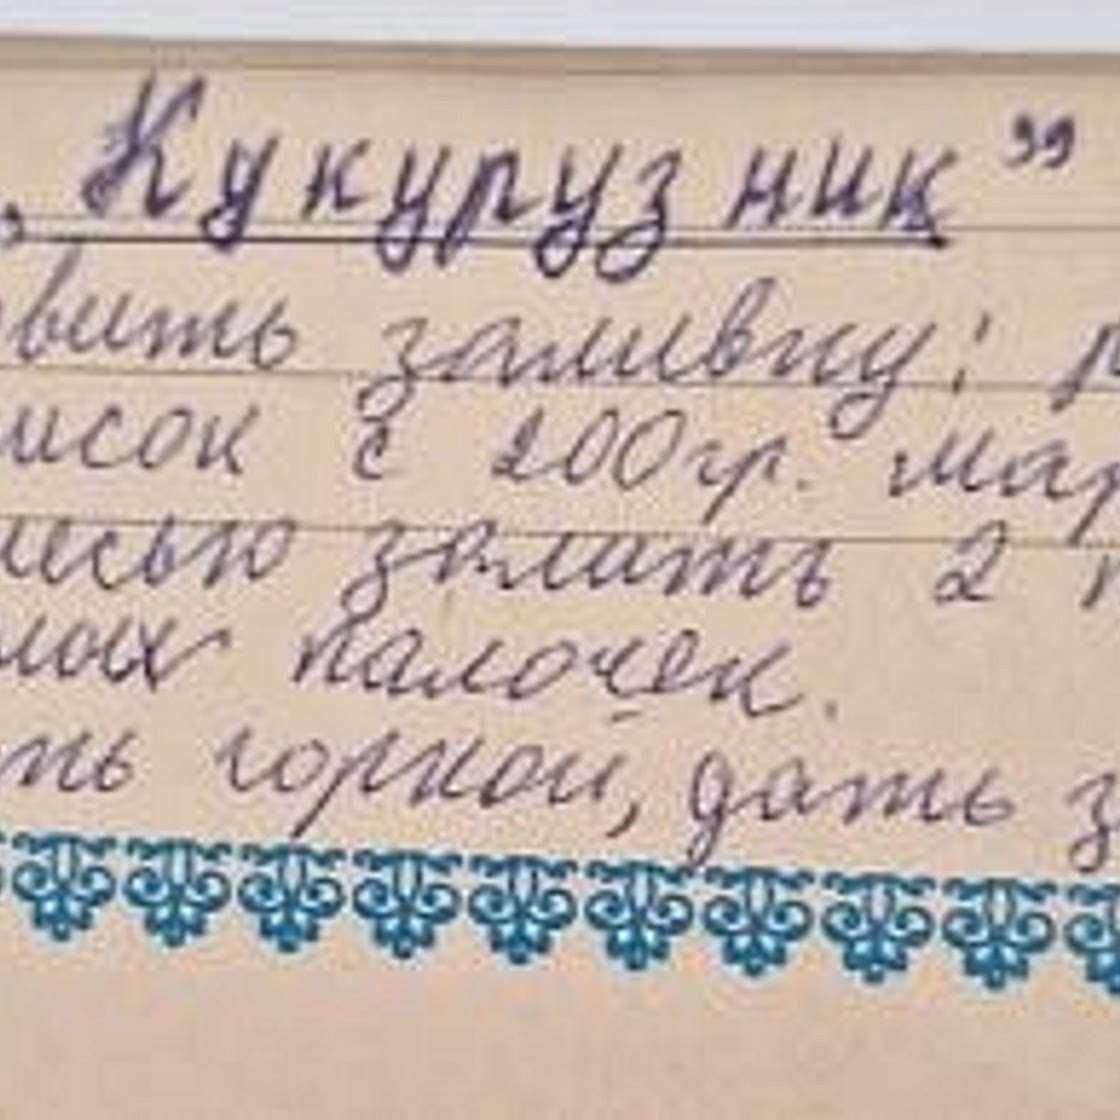 „Кукурузник”
вить заливку:
исок с 200гр. мар
месью залить 2
палочек.
ть горкой, дать з